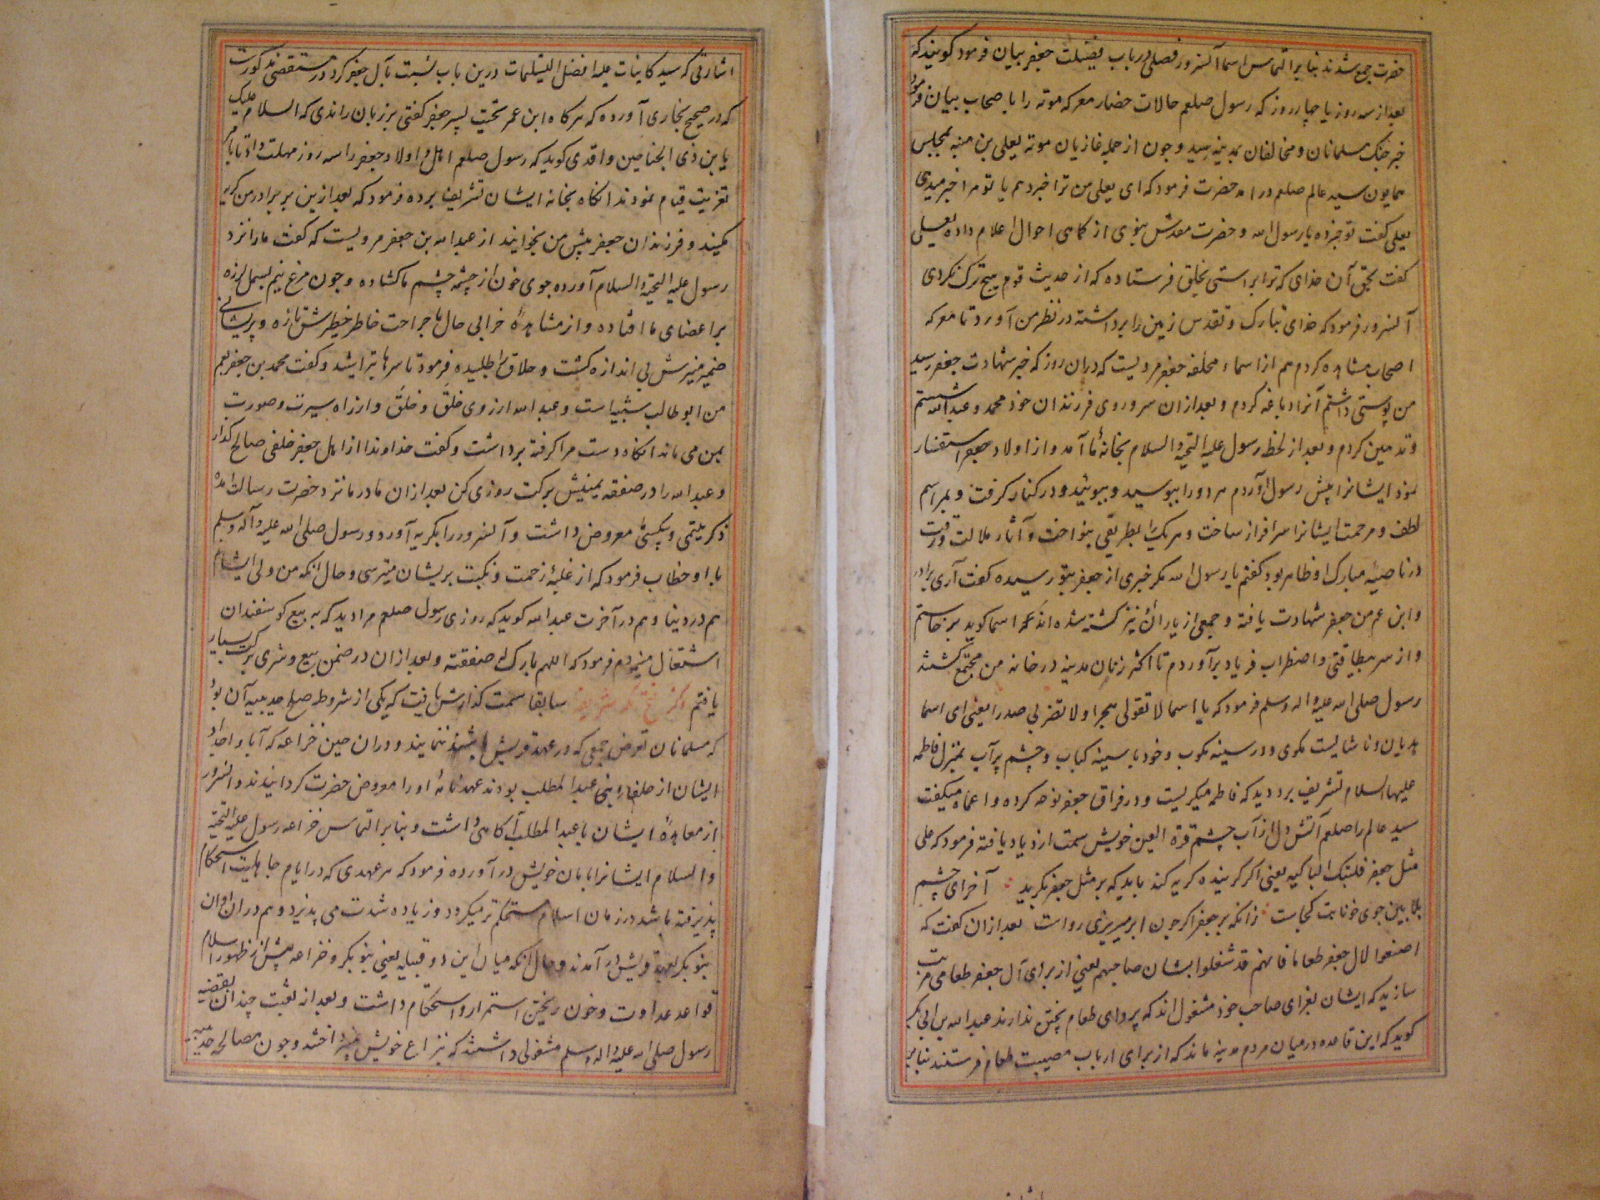 حضرت جمع شدند بنابر التماس اسما آنسرور فصلی در باب فضیلت جعفر بیان فرمود کویند که
بعد از سه روز یا چهار روز که رسول صلعم حالات حضار معرکه موته را با صحاب بیان فرمود
خبر جنک مسلمانان و مخالفان بمدینه رسید و چون از جمله غازیان موته یعلی بن منبه بمجلس
همایون سید عالم صلعم در امد حضرت فرمود که ای یعلی من ترا خبر دهم یا تو مرا خبر میدی
یعلی کفت تو خبر ده یا رسول الله و حضرت مقدس نبوی از کماهی احوال اعلام داده یعلی
کفت بحق آن خدای که ترا براستی بخلق فرستاده که از حدیث قوم هیچ ترک نکردی
آنسرور فرمود که خدای تبارک و تقدس زمین را برداشته در نظر من آورد تا معرکه
اصحاب مشاهده کردم هم از اسماء محلفه جعفر مرویست که دران روز که خبر شهادت جعفر رسید
من پوستی داشتم آنرا دباغه کردم و بعد ازان سر و روی فرزندان خود محمد و عبدالله شستم
و تدهین کردم و بعد از لحظه رسول علیه التحیة والسلام بخانهٔ ما آمد و از اولاد جعفر استفسار
نمود ایشانرا پیش رسول آوردم هر دو را ببوسید و ببوئید و در کنار کرفت و بمراسم
لطف و مرحمت ایشانرا سرافراز ساخت و هر یک را بطریقی بنواخت و آثار ملالت و رقت
در ناصیهٔ مبارک او ظاهر بود کفتم یا رسول الله مکر خبری از جعفر بتو رسیده کفت آری برادر
و ابن عم من جعفر شهادت یافته و جمعی از یاران نیز کشته شده اند اسما کوید برخاستم
و از سر بیطاقتی و اضطراب فریاد برآوردم تا اکثر زنان مدینه در خانه من مجتمع کشتند
رسول صلی الله علیه و اله و سلم فرمود که یا اسما لا تقولی هجرا ولا تضربی صدرا یعنی ای اسما
هدیان و ناشایست مکوی و در سینه مکوب و خود با سینه کباب و چشم پرآب بمنزل فاطمه
علیها السلام تشریف برد دید که فاطمه میکریست و در فراق جعفر نوحه کرده وا عماه میکفت
سید عالم را صلعم آتش دل از آب چشم قرة العین خویش سمت ازدیاد یافته فرمود که علی
مثل جعفر فلتبک الباکیه یعنی اکر کرینده کریه کند باید که بر مثل جعفر بکرید آخر ای چشم
بلا بین جوی خونابت کجاست زانکه بر جعفر اکر چون ابر میریزی رواست بعد ازان کفت که
اصنعوا لال جعفر طعاما فانهم قد شغلوا بشان صاحبهم یعنی از برای آل جعفر طعامی مرتب
سازید که ایشان بعزای صاحب خود مشغول اند که پروای طعام پختن ندارند عبدالله بن ابی بکر
کوید که این قاعده در میان مردم مدینه ماند که از برای ارباب مصیبت طعام فرستند بنابر
اشارتی که سید کاینات علیه افضل التسلیمات درین باب نسبت بآل جعفر کرد در مستقصی مذکورست
که در صحیح بخاری آورده که هرکاه ابن عمر تحیت پسر جعفر کفتی بر زبان راندی که السلام علیک
یا بن ذی الجناحین واقدی کوید که رسول صلعم اهل و اولاد جعفر را سه روز مهلت داد تا با
تعزیت قیام نمودند انکاه بخانه ایشان تشریف برده فرمود که بعد ازین بر برادر من کریه
مکنید و فرزندان جعفر پیش من بخوانید از عبدالله بن جعفر مرویست که کفت مارا نزد
رسول علیه التحیة والسلام آورده جوی خون از چشمه چشم ما کشاده و چون مرغ نیم بسمل لرزه
بر اعضای ما افتاده و از مشاهدهٔ خرابی حال ما جراحت خاطر خطیرش تازه و پریشانی
ضمیر منیرش بی اندازه کشت و حلاق را طلبیده فرمود تا سرها تراشید و کفت محمد بن جعفر بعم
من ابو طالب شبیه است و عبدالله از روی خلق و خلق و از راه سیرت و صورت
بمن می ماند انکاه دست مرا کرفته برداشت و کفت خداوندا از اهل جعفر خلفی صالح کذار
و عبدالله را در صفقه یمینش برکت روزی کن بعد ازان مادر ما نزد حضرت رسالت آمده
ذکر یتیمی و بیکسی ما معروض داشت و آنسرور را بکریه آورد و رسول صلی الله علیه و آله و سلم
با او خطاب فرمود که از غلبهٔ زحمت و نکبت بریشان میترسی و حال آنکه من ولی ایشانم
هم در دنیا و هم در آخرت عبدالله کوید که روزی رسول صلعم مرا دید که به بیع کوسفندان
اشتغال مینمودم فرمود که اللهم بارک له صفقته و بعد ازان در ضمن بیع و شری برکت بسیار
یافتم ذکر فتح مکه شریفه سابقا سمت کذارش یافت که یکی از شروط صلح حدیبیه آن بود
که مسلمانان تعرض جمعی که در عهد قریش باشند ننمایند و دران حین خزاعه که آبا و اجداد
ایشان از حلفاء بنی عبدالمطلب بودند عهدنامهٔ او را معروض حضرت کردانیدند و آنسرور
از معاهدهٔ ایشان با عبدالمطلب آکاهی داشت و بنابر التماس خزاعه رسول علیه التحیة
والسلام ایشانرا بامان خویش درآورده فرمود که هر عهدی که در ایام جاهلیت استحکام
پذیرفته باشد در زمان اسلام مستحکم تر میکردد و زیاده شدت می پذیرد و هم دران اوان
بنو بکر بعهد قریش درآمدند و حال آنکه میان این دو قبیله یعنی بنو بکر و خزاعه پیش از ظهور اسلام
قواعد عداوت و خون ریختن استمرار و استحکام داشت و بعد از بعثت چندان بقضیه
رسول صلی الله علیه و اله و سلم مشغولی داشتند که بنزاع خویش نپرداختند و چون مصالحه حدیبیه